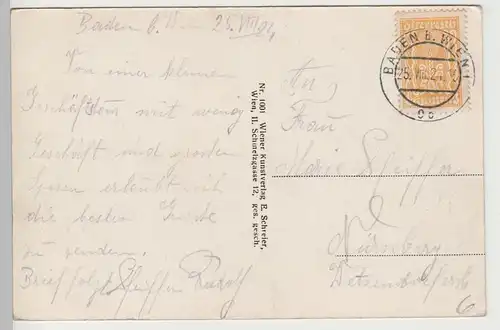 Baden b. Wien 25. VIII 24.
Von einer kleinen
mit wenig
Geschäft und großen
Spesen erlaubt sich
die besten Grüße
zu senden.
Brief folgt Pfeiffer Rudolf
Nr. 1001 Wiener Kunstverlag E. Schreier,
Wien, II. Schmelzgasse 12, ges. gesch.
BADEN B. WIEN 1
An
Frau
Marie Pfeiffer
Nürnberg